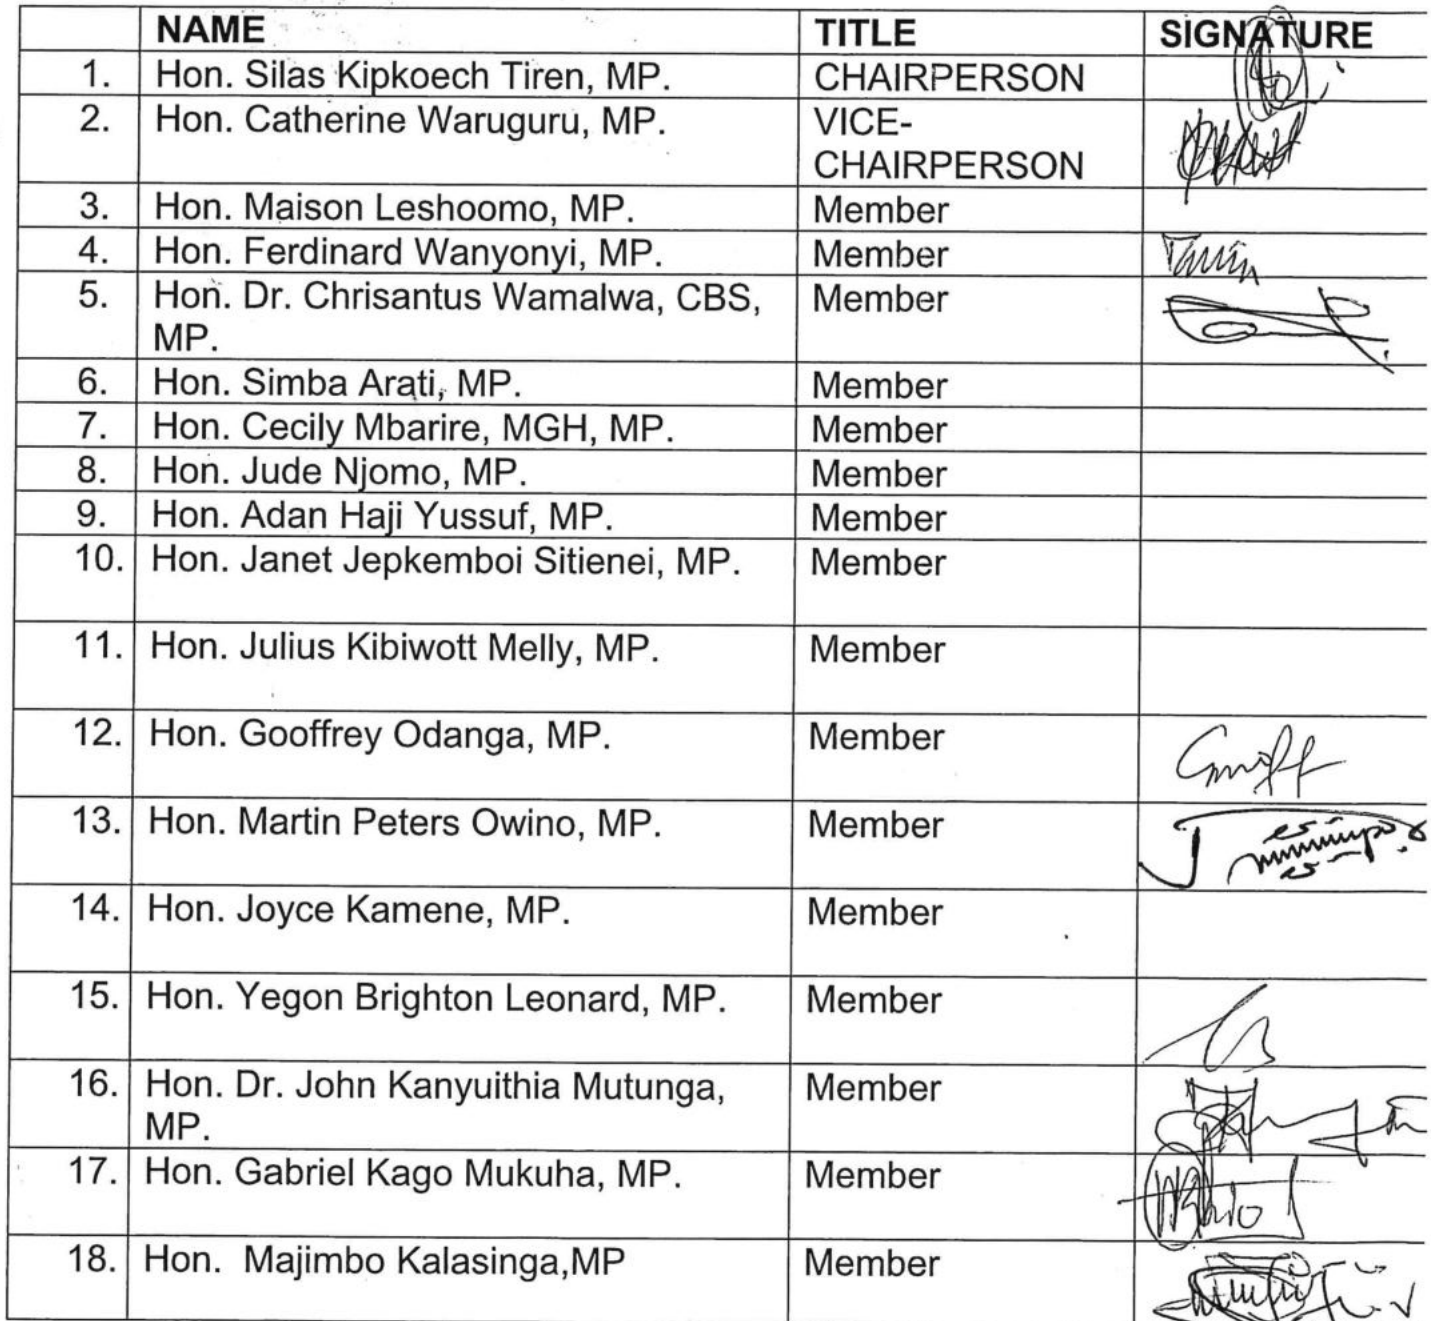 NAME TITLE SIGNATURE
1. Hon. Silas Kipkoech Tiren, MP. CHAIRPERSON
2. Hon. Catherine Waruguru, MP. VICE-
CHAIRPERSON
3. Hon. Maison Leshoomo, MP. Member
4. Hon. Ferdinard Wanyonyi, MP. Member
5. Hon. Dr. Chrisantus Wamalwa, CBS, Member
MP.
6. Hon. Simba Arati, MP. Member
7. Hon. Cecily Mbarire, MGH, MP. Member
8. Hon. Jude Njomo, MP. Member
9. Hon. Adan Haji Yussuf, MP. Member
10. Hon. Janet Jepkemboi Sitienei, MP. Member
11. Hon. Julius Kibiwott Melly, MP. Member
12. Hon. Gooffrey Odanga, MP. Member
13. Hon. Martin Peters Owino, MP. Member
14. Hon. Joyce Kamene, MP. Member
15. Hon. Yegon Brighton Leonard, MP. Member
16. Hon. Dr. John Kanyuithia Mutunga, Member
MP.
17. Hon. Gabriel Kago Mukuha, MP. Member
18. Hon. Majimbo Kalasinga,MP Member